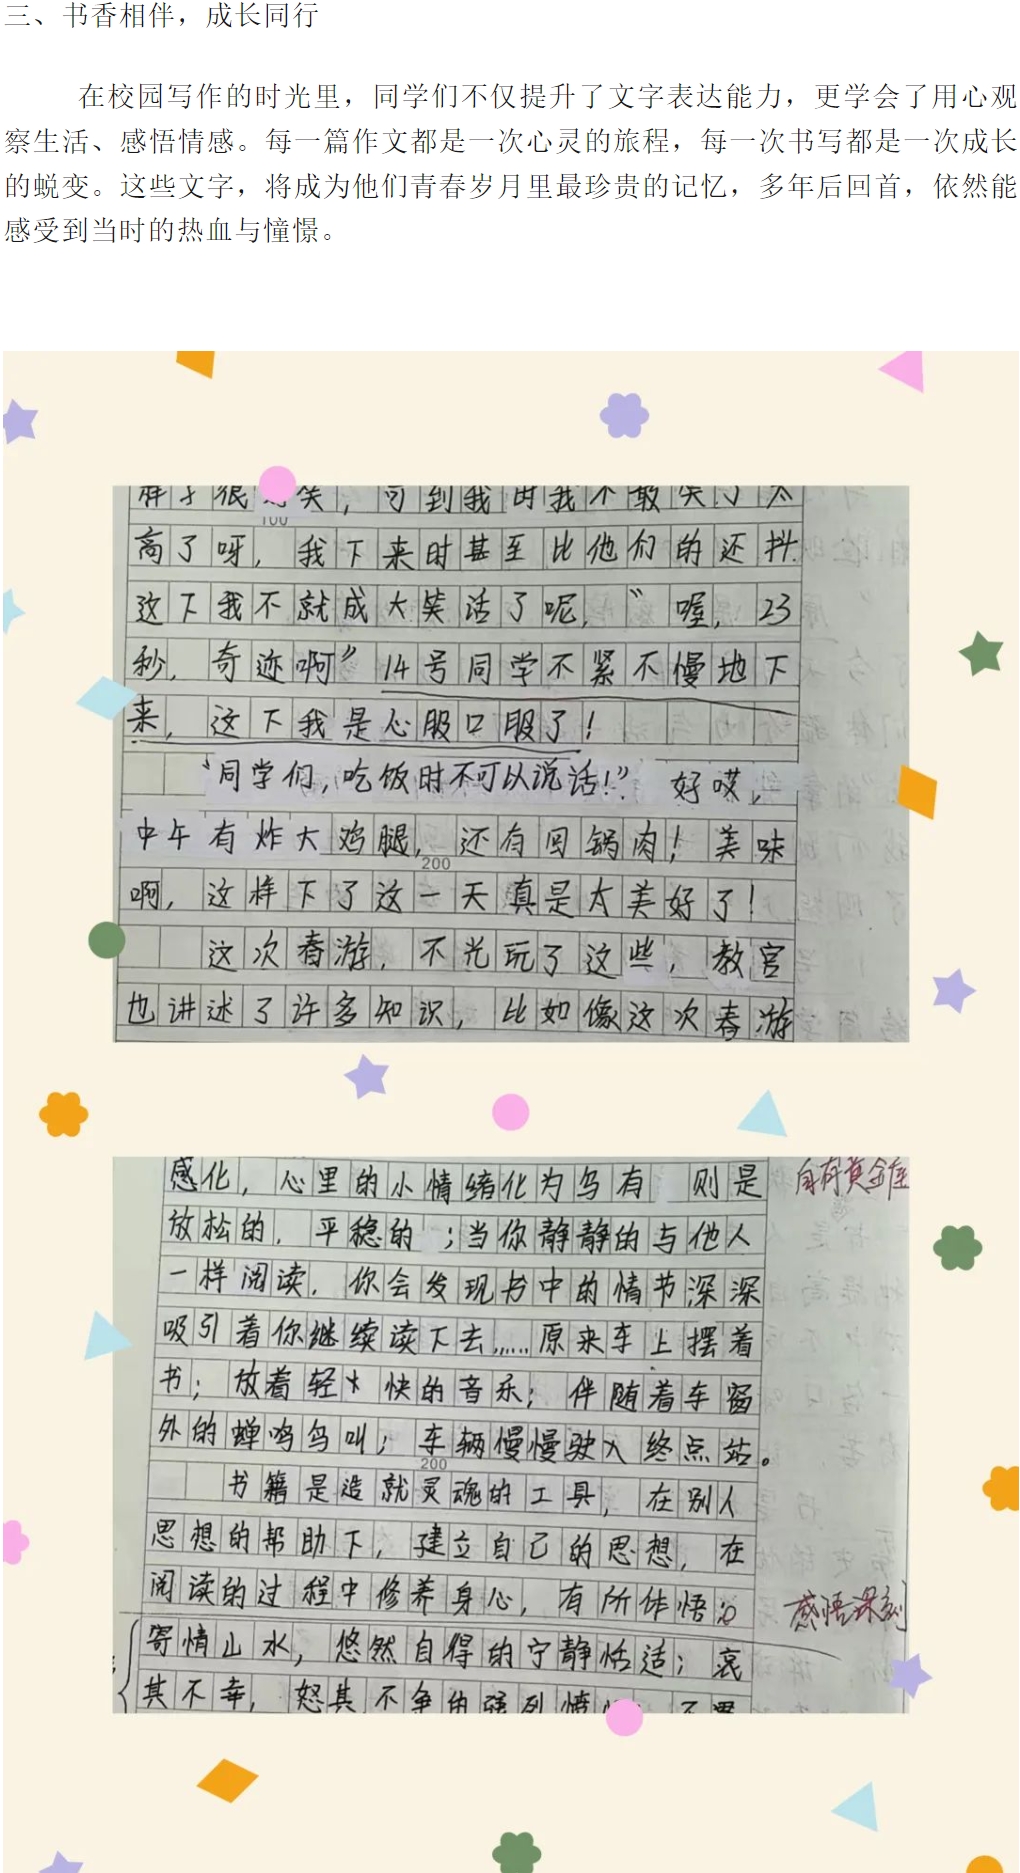 三、书香相伴，成长同行
在校园写作的时光里，同学们不仅提升了文字表达能力，更学会了用心观
察生活、感悟情感。每一篇作文都是一次心灵的旅程，每一次书写都是一次成长
的蜕变。这些文字，将成为他们青春岁月里最珍贵的记忆，多年后回首，依然能
感受到当时的热血与憧憬。
样子很好笑，可到我时我不敢笑了太
100
高了呀，我下来时甚至比他们的还抖.
这下我不就成大笑话了呢，”喔，23
秒，奇迹啊”14号同学不紧不慢地下
来，这下我是心服口服了！
“同学们，吃饭时不可以说话！”好哎，
中午有炸大鸡腿，还有回锅肉！美味
200
啊，这样下了这一天真是太美好了！
这次春游，不光玩了这些，教官
也讲述了许多知识，比如像这次春游
感化，心里的小情绪化为乌有 则是
自有黄金屋
放松的，平稳的；当你静静的与他人
一样阅读，你会发现书中的情节深深
吸引着你继续读下去……原来车上摆着
书；放着轻快的音乐；伴随着车窗
外的蝉鸣鸟叫；车辆慢慢驶入终点站。
200
书籍是造就灵魂的工具，在别人
思想的帮助下，建立自己的思想，在
阅读的过程中修养身心，有所体悟：
感悟深刻
寄情山水，悠然自得的宁静恬适；哀
其不幸，怒其不争的强烈情